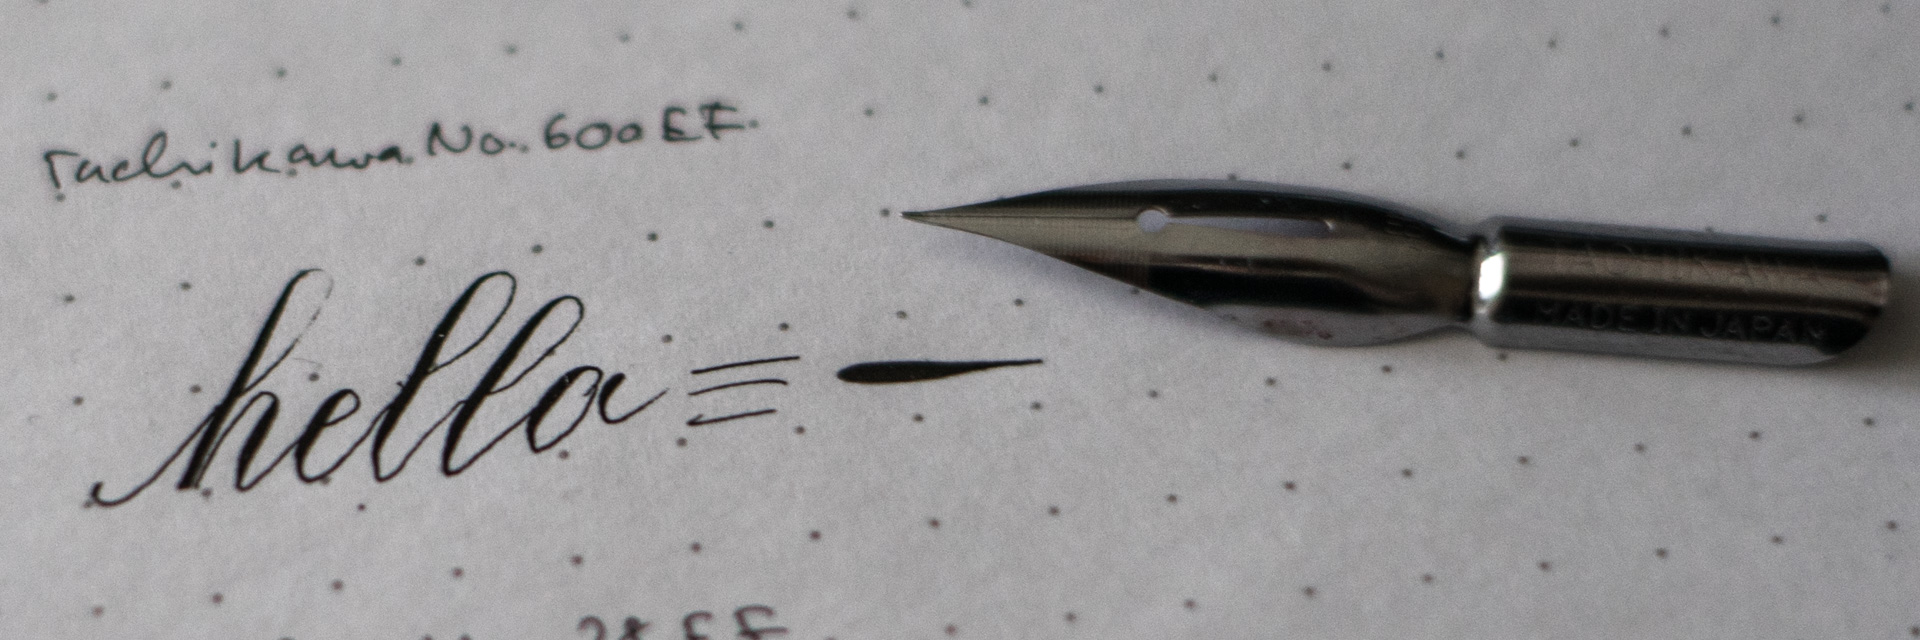 Tachikawa No. 600 EF.
hello
TACHIKAWA
MADE IN JAPAN
EF